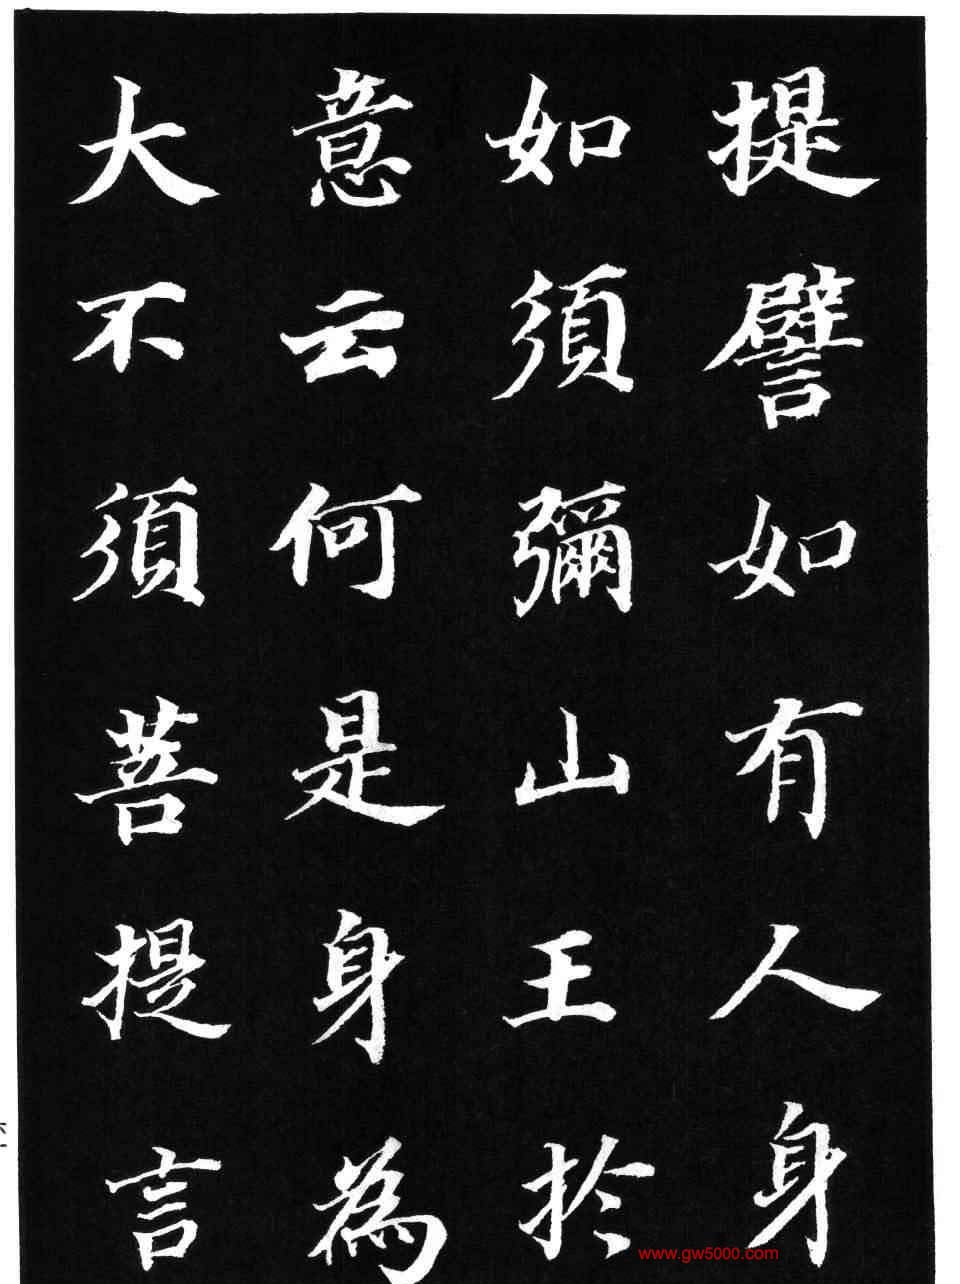 提譬如有人身
如須彌山王於
意云何是身為
大不須菩提言
www.gw5000.com